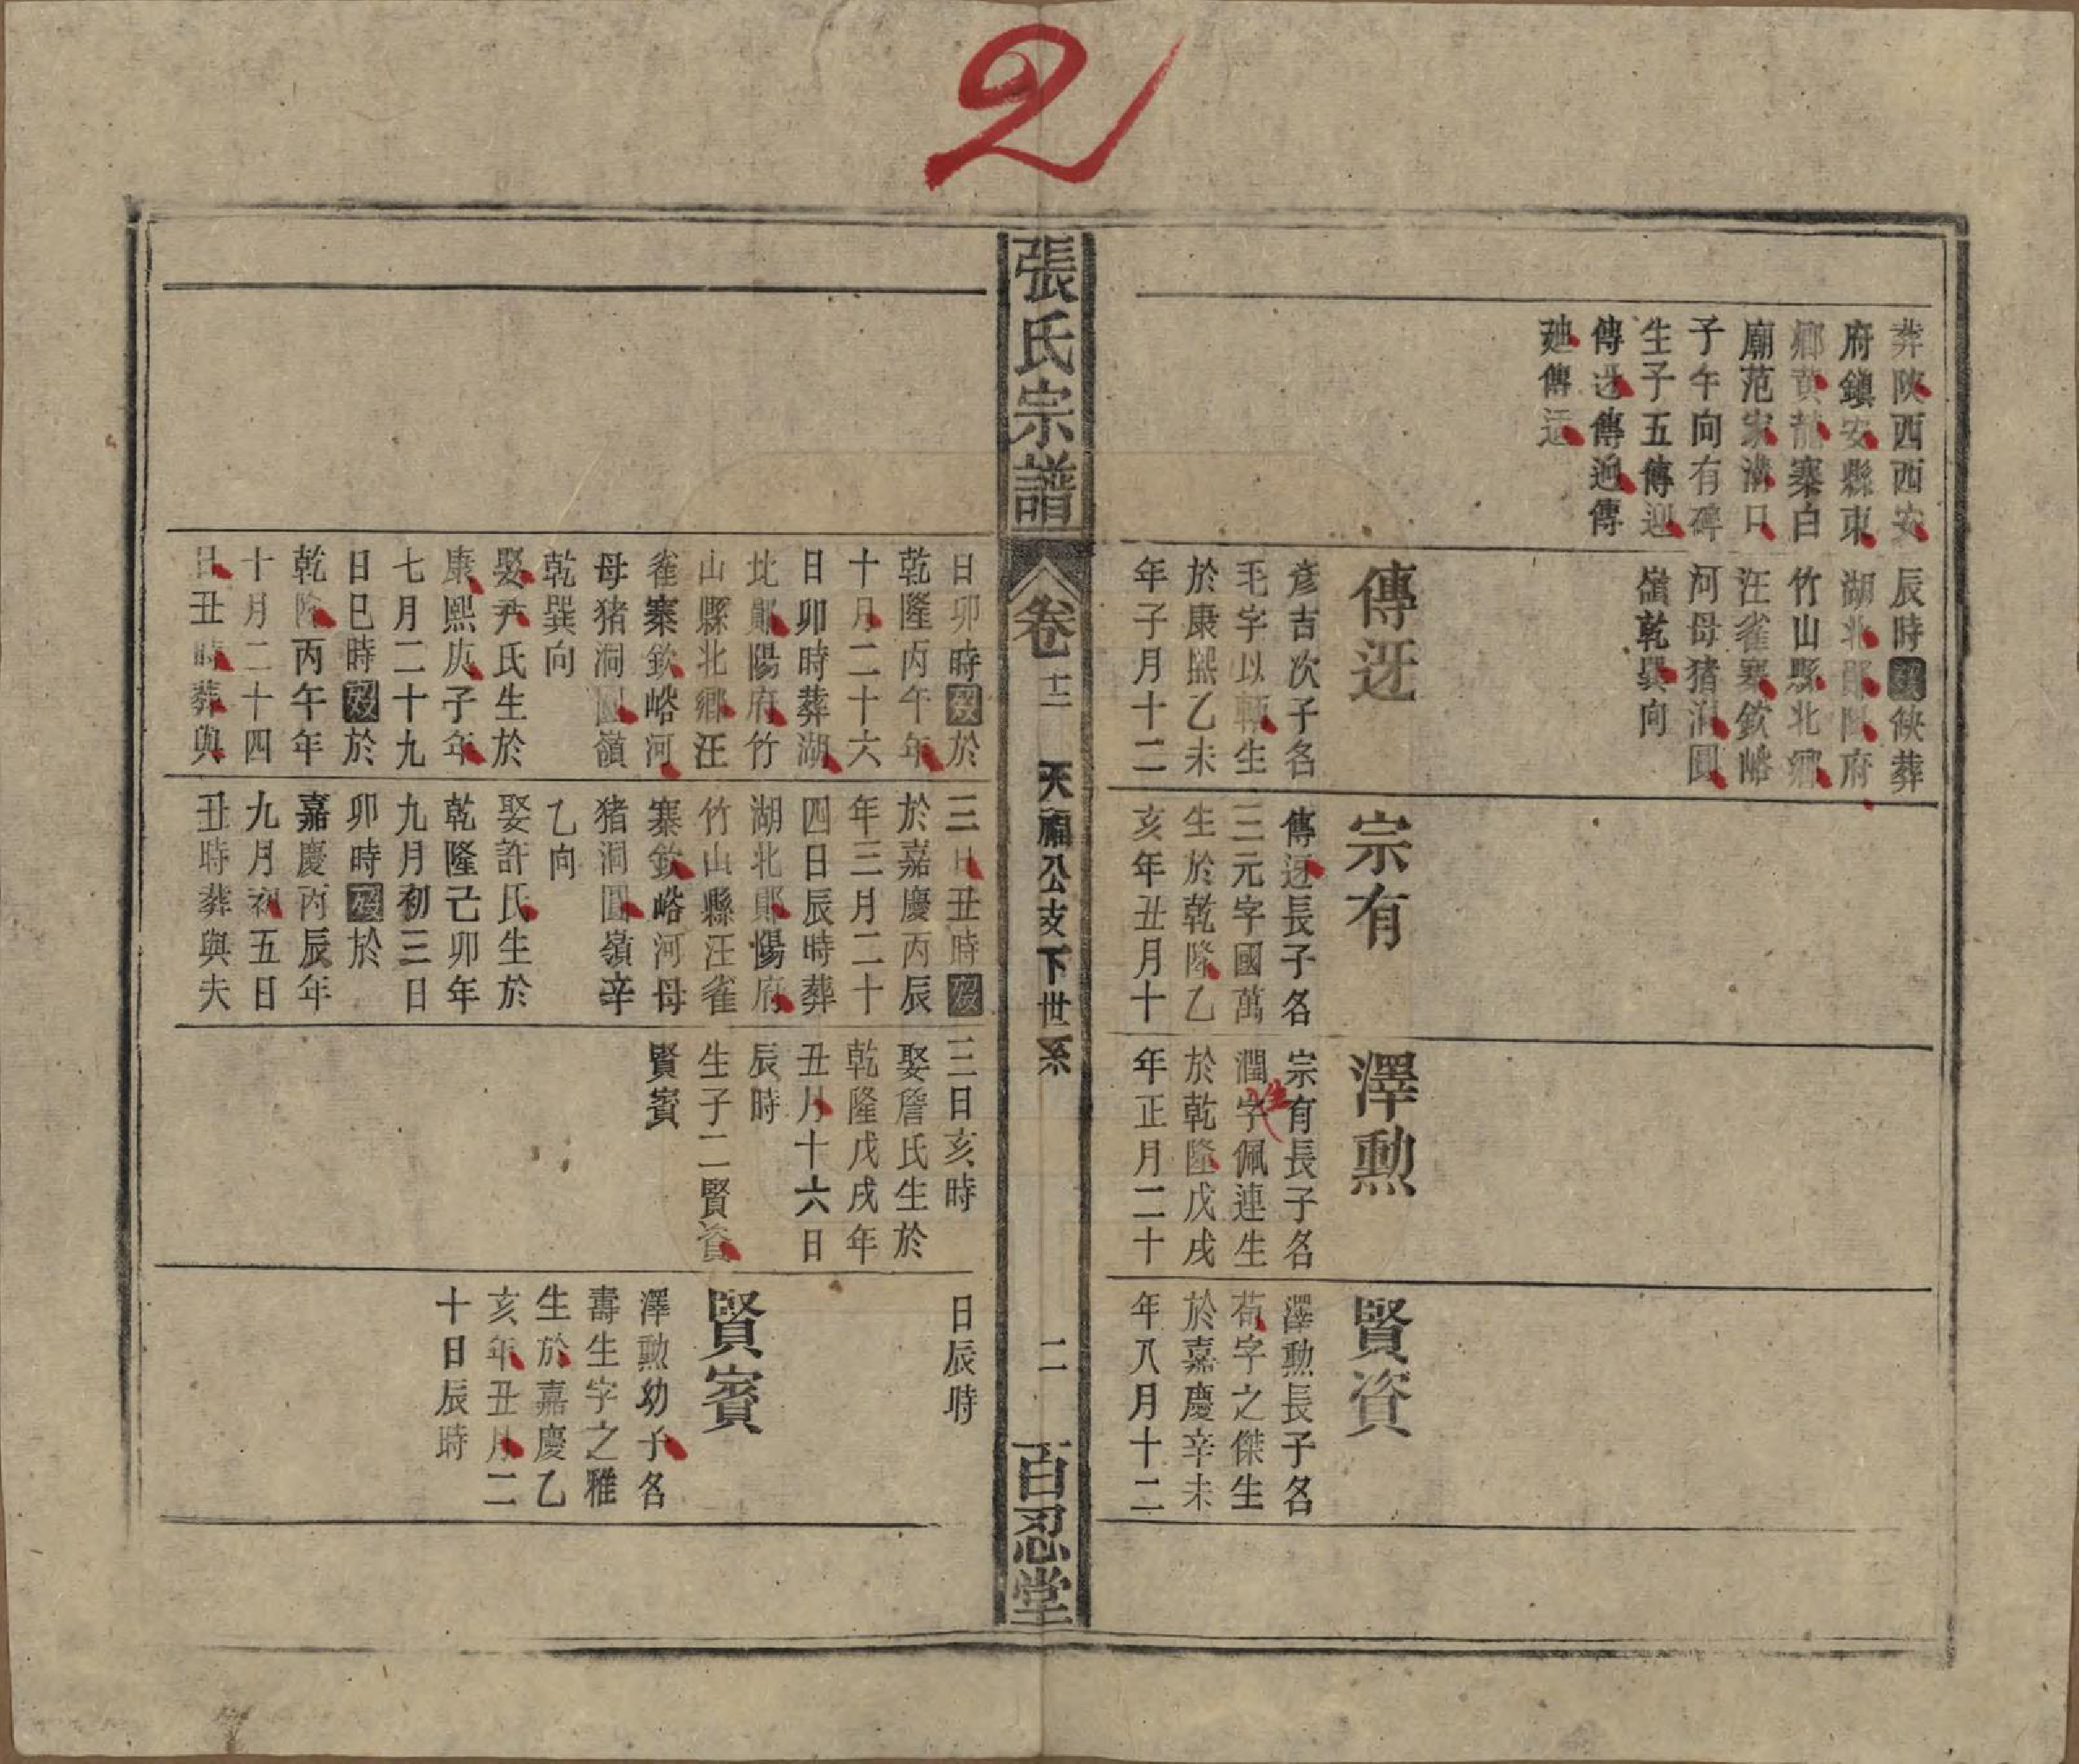 2
葬陝西西安
府鎮安縣東
鄉黃龍寨白
廟范家溝口
子午向有碑
生子五傳迎
傳迓傳迥傳
傳
辰時歿於葬
湖北鄖陽府
竹山縣北鄉
汪雀寨欽峪
河母猪洞圓
嶺乾巽向
傳迓
彥吉次子名
毛字以輔生
於康熙乙未
年子月十二
宗有
傳迓長子名
三元字國萬
生於乾隆乙
亥年丑月十
澤勲
宗有長子名
潤字佩連生
於乾隆戊戌
年正月二十
賢資
澤勲長子名
荀字之傑生
於嘉慶辛未
年八月十二
張氏宗譜
卷十二
天福公支下世系
二
百忍堂
日卯時歿於
乾隆丙午年
十月二十六
日卯時葬湖
北鄖陽府竹
山縣北鄉汪
雀寨欽峪河
母猪洞圓嶺
乾巽向
娶尹氏生於
康熙庚子年
七月二十九
日巳時歿於
乾隆丙午年
十月二十四
日丑時葬與
三日丑時歿
於嘉慶丙辰
年三月二十
四日辰時葬
湖北鄖陽府
竹山縣汪雀
寨欽峪河母
猪洞圓嶺辛
乙向
娶許氏生於
乾隆己卯年
九月初三日
卯時歿於
嘉慶丙辰年
九月初五日
丑時葬與夫
三日亥時
娶詹氏生於
乾隆戊戌年
丑月十六日
辰時
生子二賢資
賢賓
日辰時
賢賓
澤勲幼子名
壽生字之雅
生於嘉慶乙
亥年丑月二
十日辰時